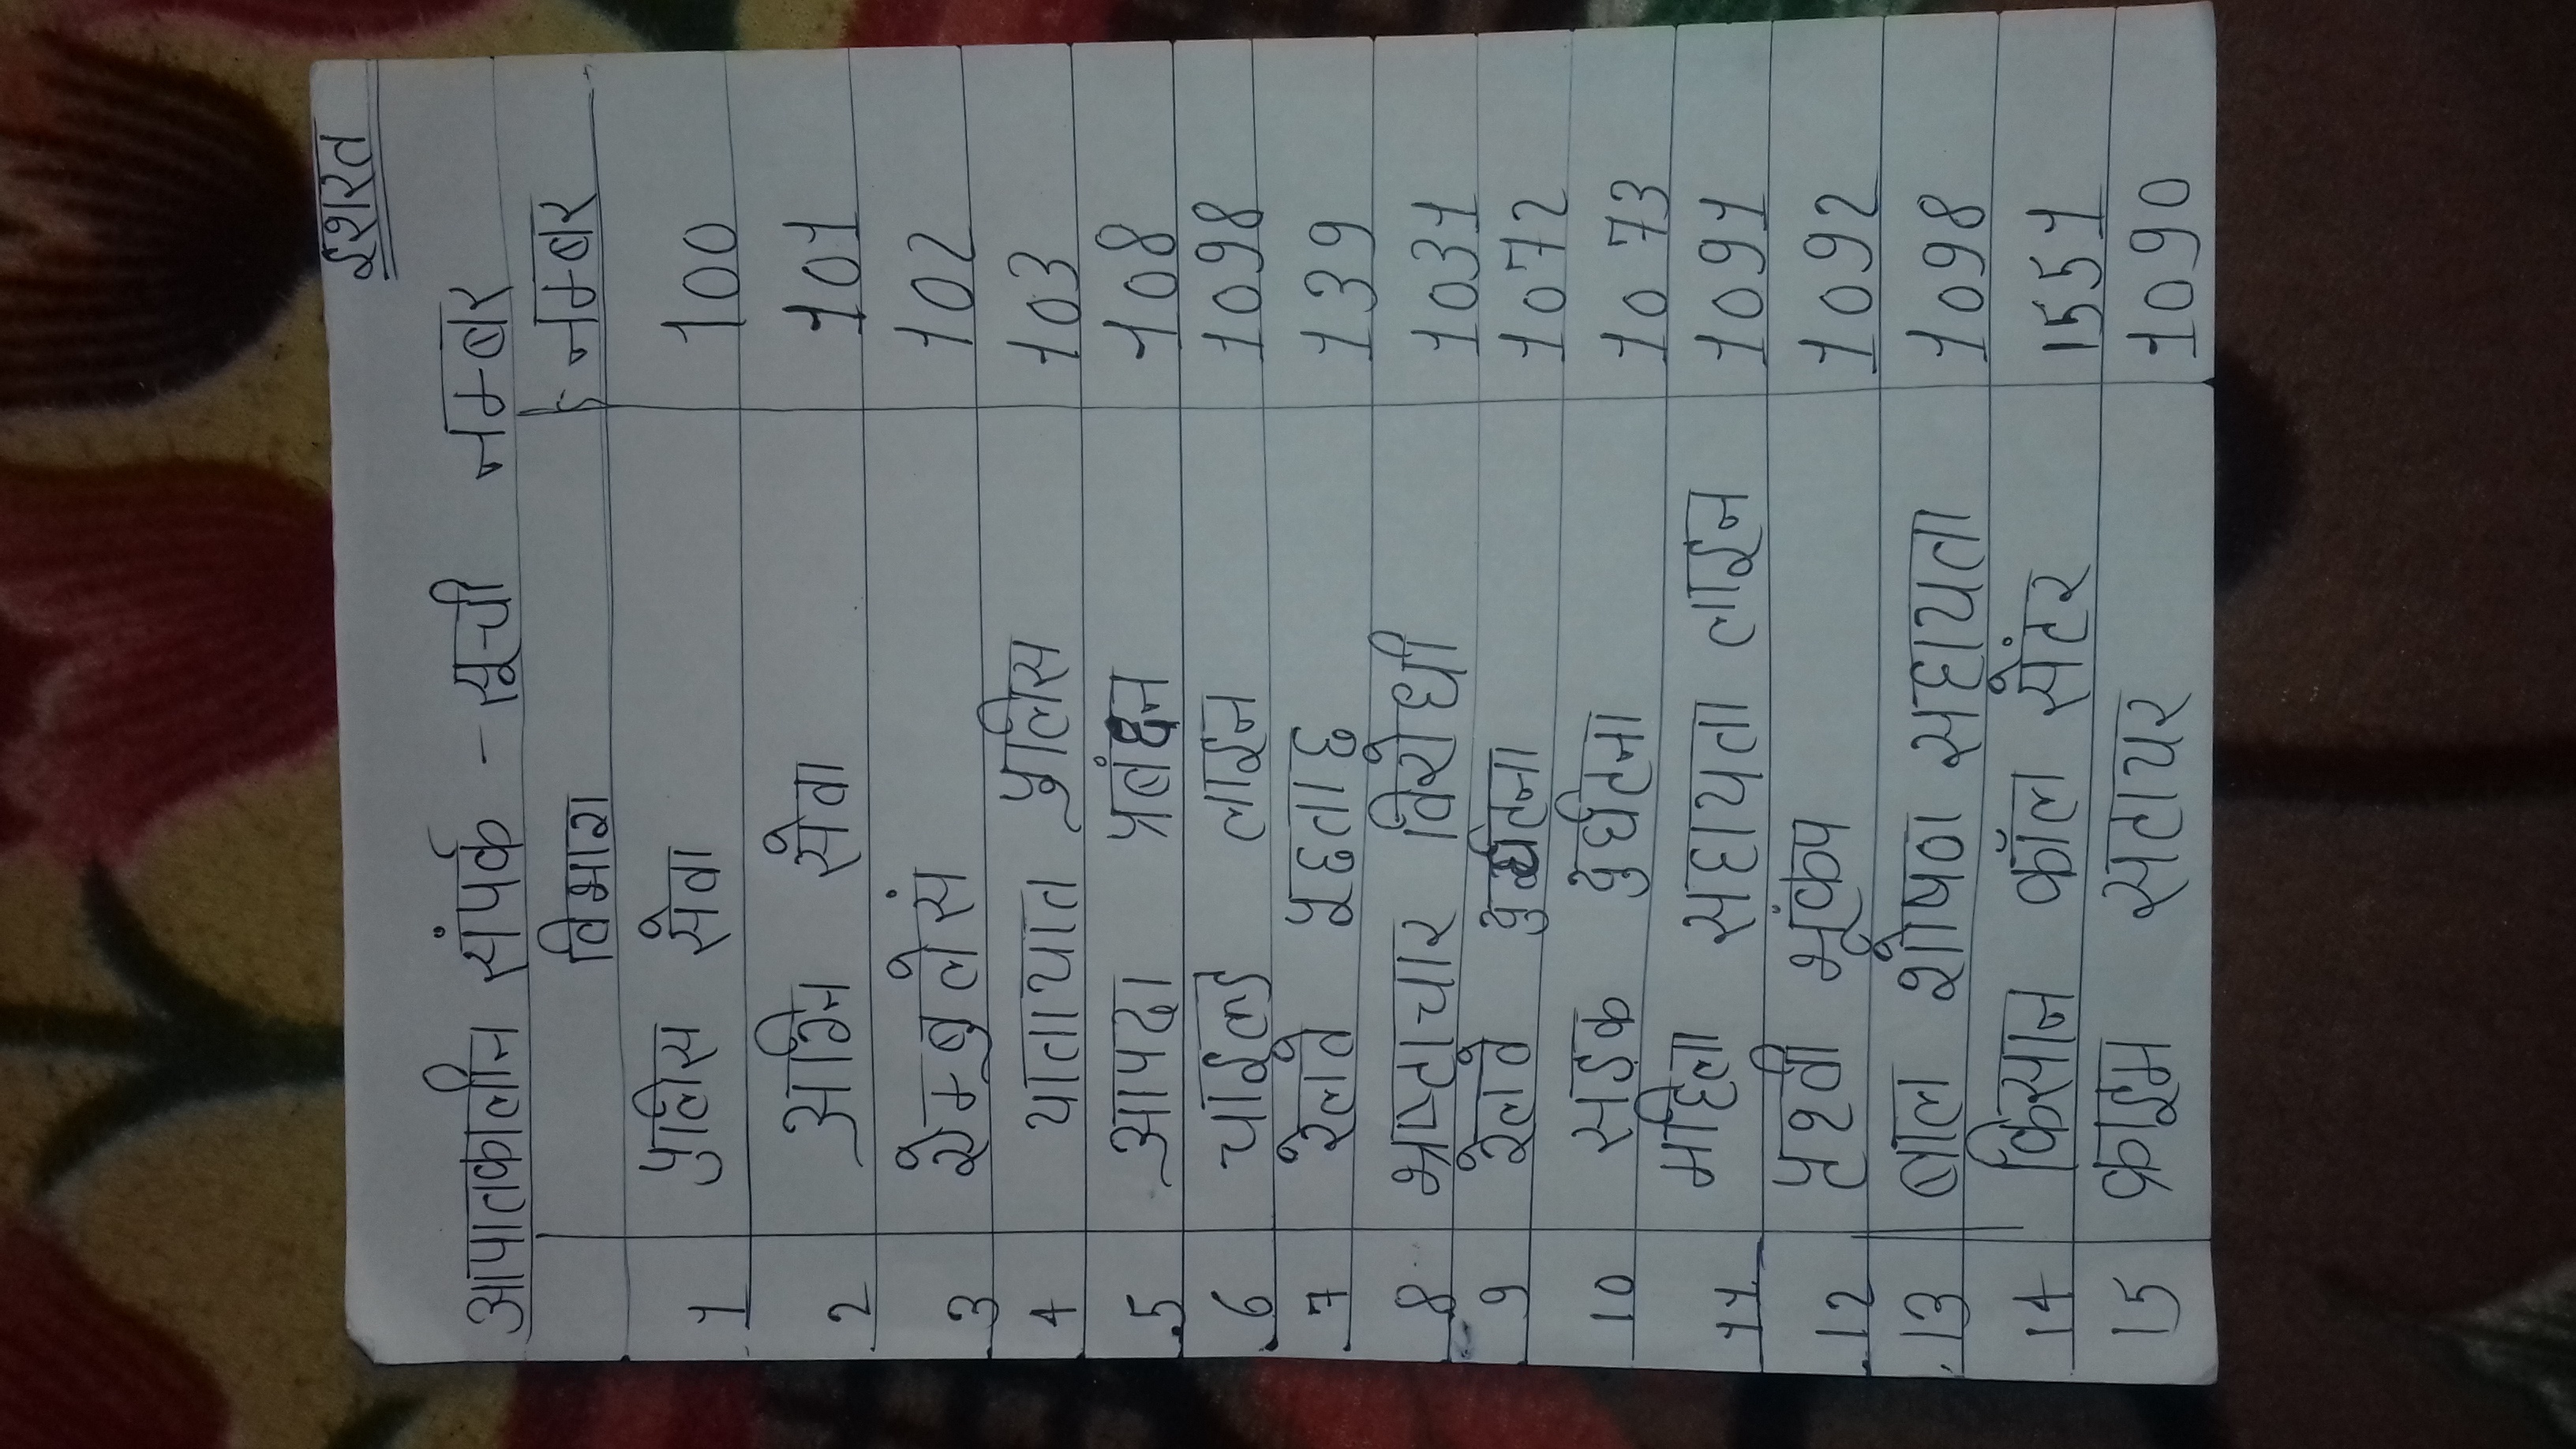 इशरत
आपातकालीन संपर्क - सूची नम्बर
विभाग नम्बर
1 पुलिस सेवा 100
2 अग्नि सेवा 101
3 ऐम्बुलेंस 102
4 यातायात पुलिस 103
5 आपदा प्रबंधन 108
6 चाईल्ड लाइन 1098
7 रेलवे पूछताछ 139
8 भ्रष्टाचार विरोधी 1031
9 रेलवे दुर्घटना 1072
10 सड़क दुर्घटना 1073
11 महिला सहायता लाईन 1091
12 पृथ्वी भूकंप 1092
13 बाल शोषण सहायता 1098
14 किसान कॉल सेंटर 1551
15 क्राइम स्टापर 1090